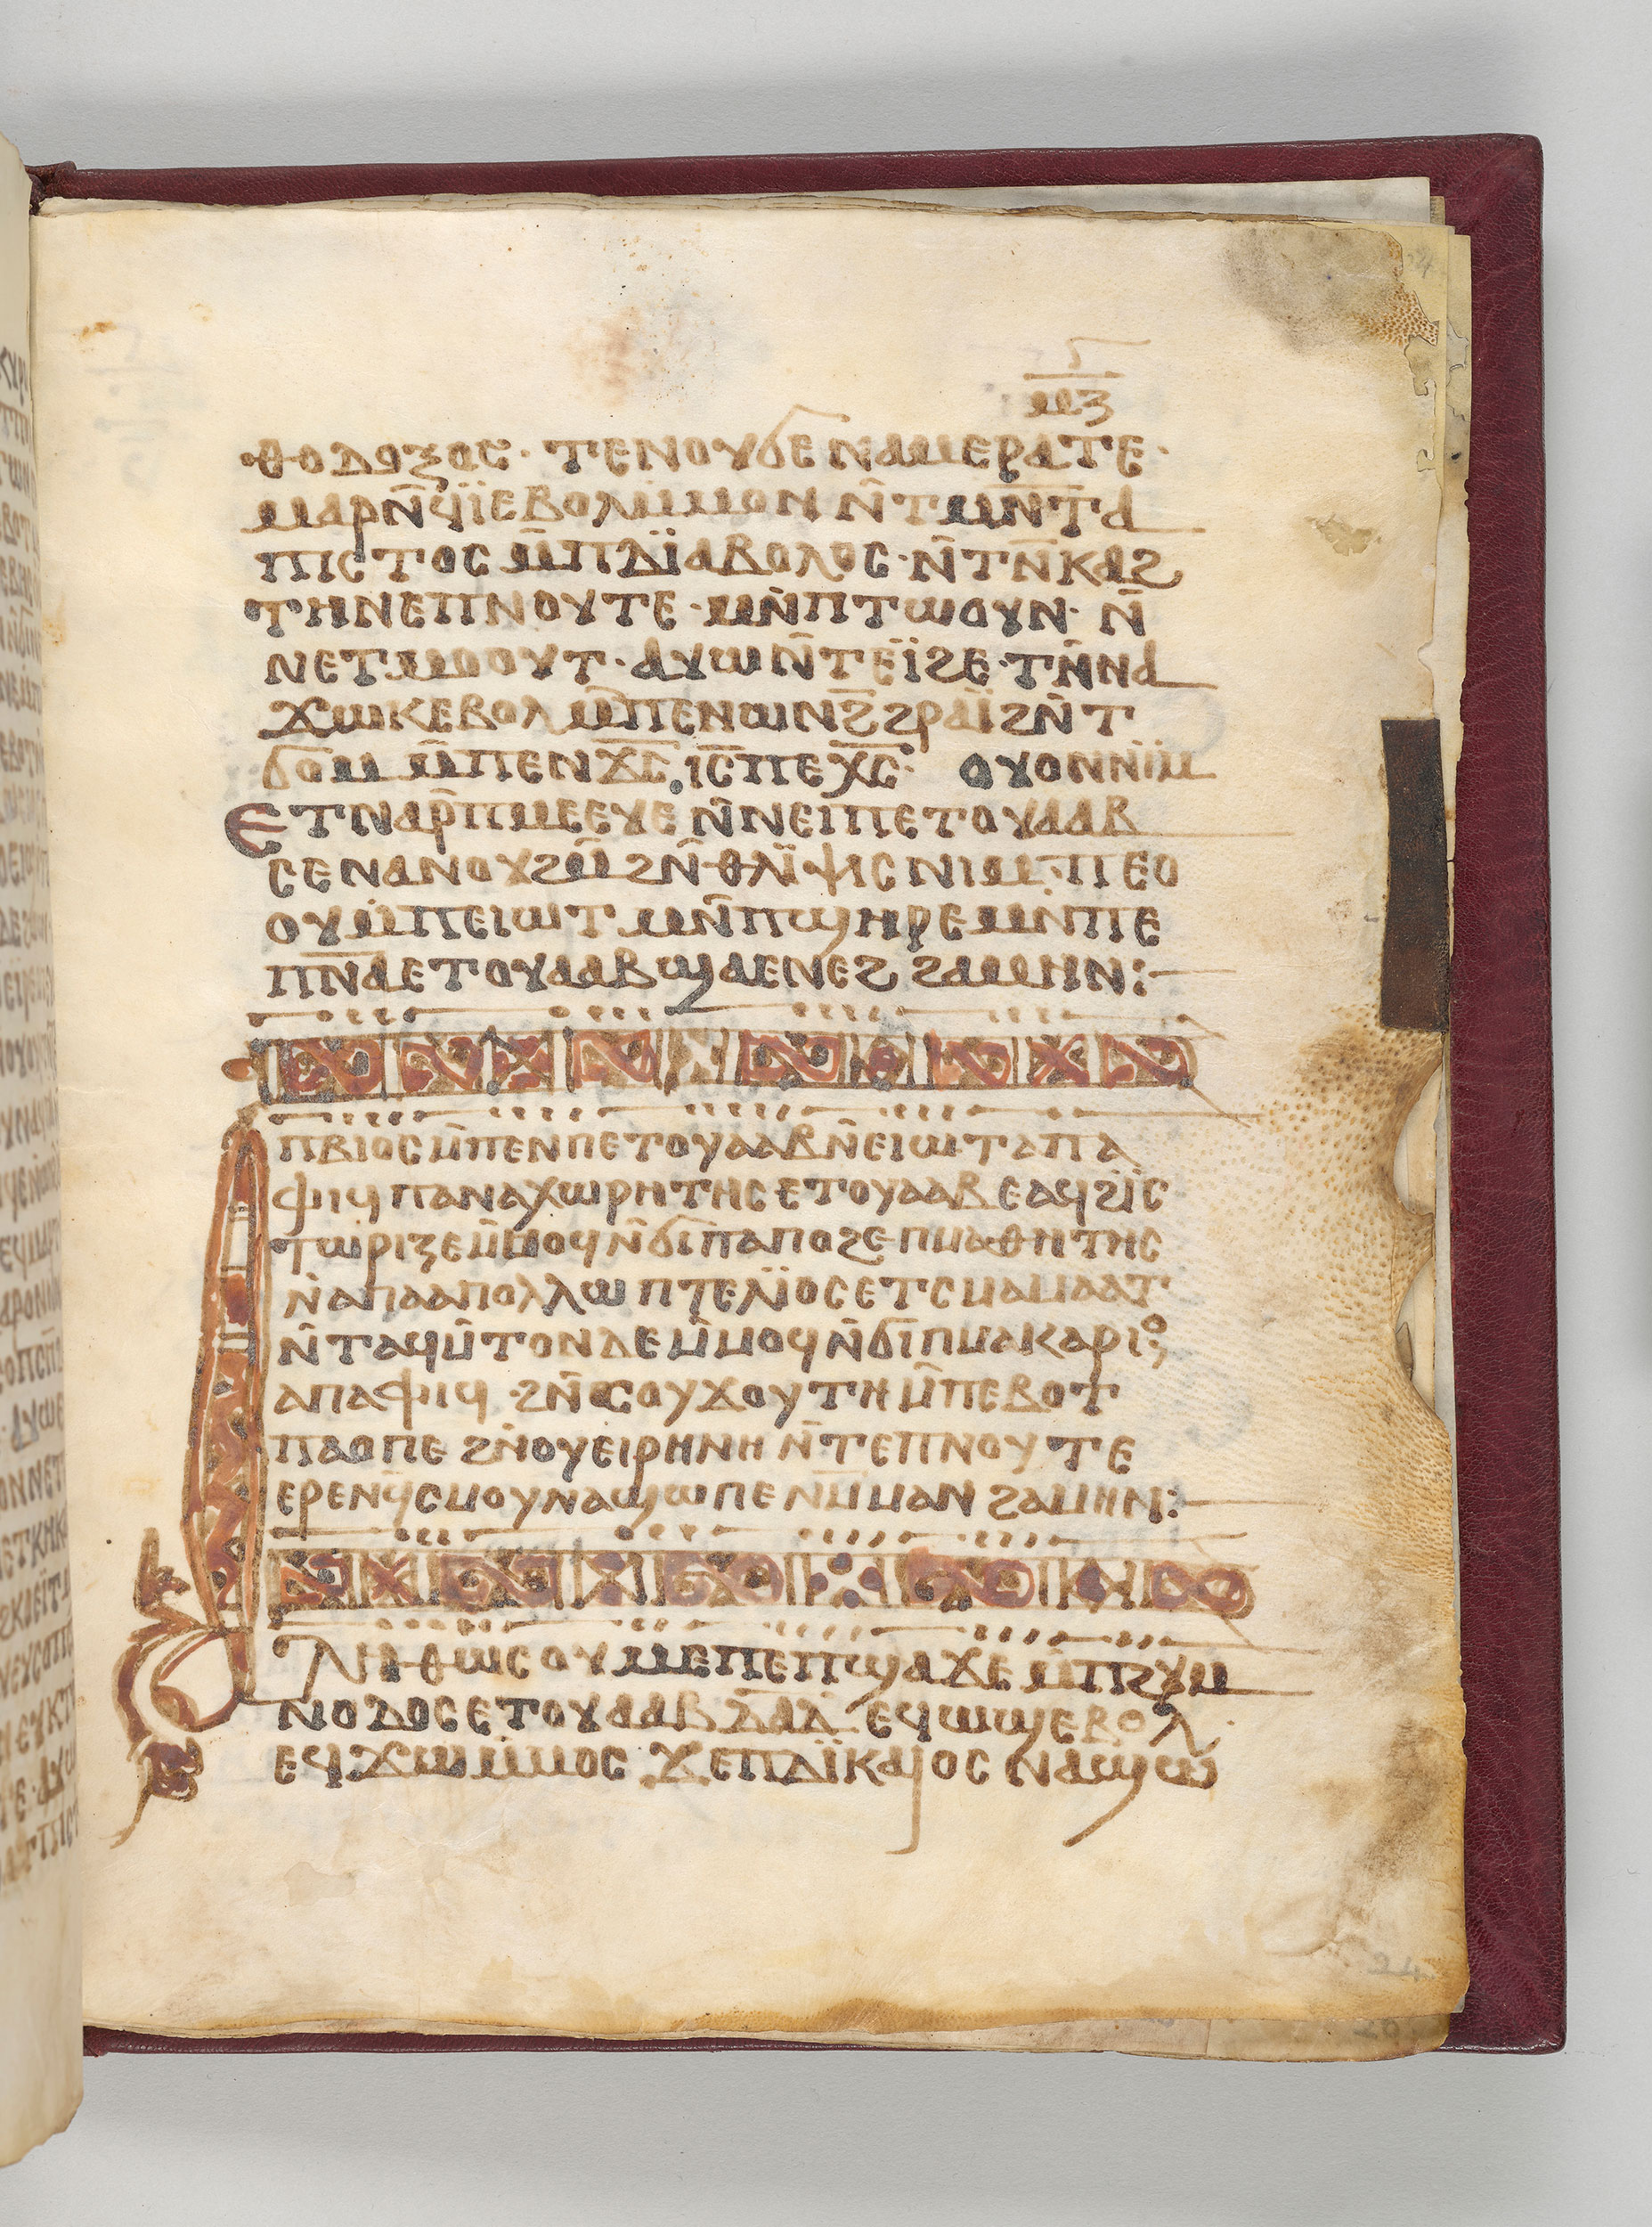 ⲙⲍ
ⲑⲟⲇⲟⲝⲟⲥ· ⲧⲉⲛⲟⲩϭⲉ ⲛⲁⲙⲉⲣⲁⲧⲉ·
ⲙⲁⲣⲛ̄ϥⲓ̈ ⲉⲃⲟⲗ ⲙ̄ⲙⲟⲛ ⲛ̄ⲧⲙⲛ̄ⲧⲁ
ⲡⲓⲥⲧⲟⲥ ⲙ̄ⲡⲇⲓ̈ⲁⲃⲟⲗⲟⲥ· ⲛ̄ⲧⲛ̄ⲕⲁϩ
ⲧⲏⲛ ⲉⲡⲛⲟⲩⲧⲉ· ⲙⲛ̄ⲡⲧⲱⲟⲩⲛ· ⲛ̄
ⲛⲉⲧⲙⲟⲟⲩⲧ· ⲁⲩⲱ ⲛ̄ⲧⲉⲓ̈ϩⲉ· ⲧⲛ̄ⲛⲁ
ϫⲱⲕ ⲉⲃⲟⲗ ⲙ̄ⲡⲉⲛⲱⲛϩ̄ ϩⲣⲁⲓ̈ ϩⲛ̄ⲧ
ϭⲟⲙ ⲙ̄ⲡⲉⲛϫ̄ⲥ̄ ⲓ̄ⲥ̄ ⲡⲉⲭ̄ⲥ̄· ⲟⲩⲟⲛ ⲛⲓ̈ⲙ
ⲉⲧⲛⲁⲣ̄ⲡⲙⲉⲉⲩⲉ ⲛ̄ⲛⲉⲓⲡⲉⲧⲟⲩⲁⲁⲃ
ⲥⲉⲛⲁⲛⲟⲩϩⲙ̄ ϩⲛ̄ⲑⲗⲓ̈ⲯⲓⲥ ⲛⲓⲙ· ⲡⲉⲟ
ⲟⲩ ⲙ̄ⲡⲉⲓⲱⲧ ⲙⲛ̄ⲡϣⲏⲣⲉ ⲙⲛⲡⲉ
ⲡⲛ̄ⲁ ⲉⲧⲟⲩⲁⲁⲃ ϣⲁⲉⲛⲉϩ ϩⲁⲙⲏⲛ:
ⲡⲃⲓⲟⲥ ⲙ̄ⲡⲉⲛⲡⲉⲧⲟⲩⲁⲁⲃ ⲛ̄ⲉⲓⲱⲧ ⲁⲡⲁ
ⲫⲓϥ ⲡⲁⲛⲁⲭⲱⲣⲏⲧⲏⲥ ⲉⲧⲟⲩⲁⲁⲃ ⲉⲁϥϩⲓ̈ⲥ
ⲧⲱⲣⲓⲍⲉ ⲙ̄ⲙⲟϥ ⲛ̄ϭⲓ ⲡⲁⲡⲟϩⲉ ⲡⲙⲁⲑⲏⲧⲏⲥ
ⲛ̄ⲁⲡⲁ ⲁⲡⲟⲗⲗⲱ ⲡⲧⲉⲗⲓ̈ⲟⲥ ⲉⲧⲥⲙⲁⲙⲁⲁⲧ
ⲛ̄ⲧⲁϥⲙ̄ⲧⲟⲛ ⲇⲉ ⲙ̄ⲙⲟϥ ⲛ̄ϭⲓ ⲡⲙⲁⲕⲁⲣⲓⲟⲥ
ⲁⲡⲁ ⲫⲓϥ· ϩⲛ̄ⲥⲟⲩϫⲟⲩⲧⲏ ⲙ̄ⲡⲉⲃⲟⲧ
ⲡⲁⲟⲡⲉ ϩⲛ̄ⲟⲩⲉⲓⲣⲏⲛⲏ ⲛ̄ⲧⲉⲡⲛⲟⲩⲧⲉ
ⲉⲣⲉⲛϥ̄ⲥⲙⲟⲩ ⲛⲁϣⲱⲡⲉ ⲛⲙ̄ⲙⲁⲛ ϩⲁⲙⲏⲛ:
ⲁⲗⲏⲑⲱⲥ ⲟⲩⲙⲉ ⲡⲉ ⲡϣⲁϫⲉ ⲙ̄ⲡϩⲩⲙ
ⲛⲟⲇⲟⲥ ⲉⲧⲟⲩⲁⲁⲃ ⲇⲁ̄ⲇ̄ ⲉϥⲱϣ ⲉⲃⲟⲗ·
ⲉϥϫⲱ ⲙ̄ⲙⲟⲥ ϫⲉⲡⲇⲓ̈ⲕⲁⲓⲟⲥ ⲛⲁϣⲱ